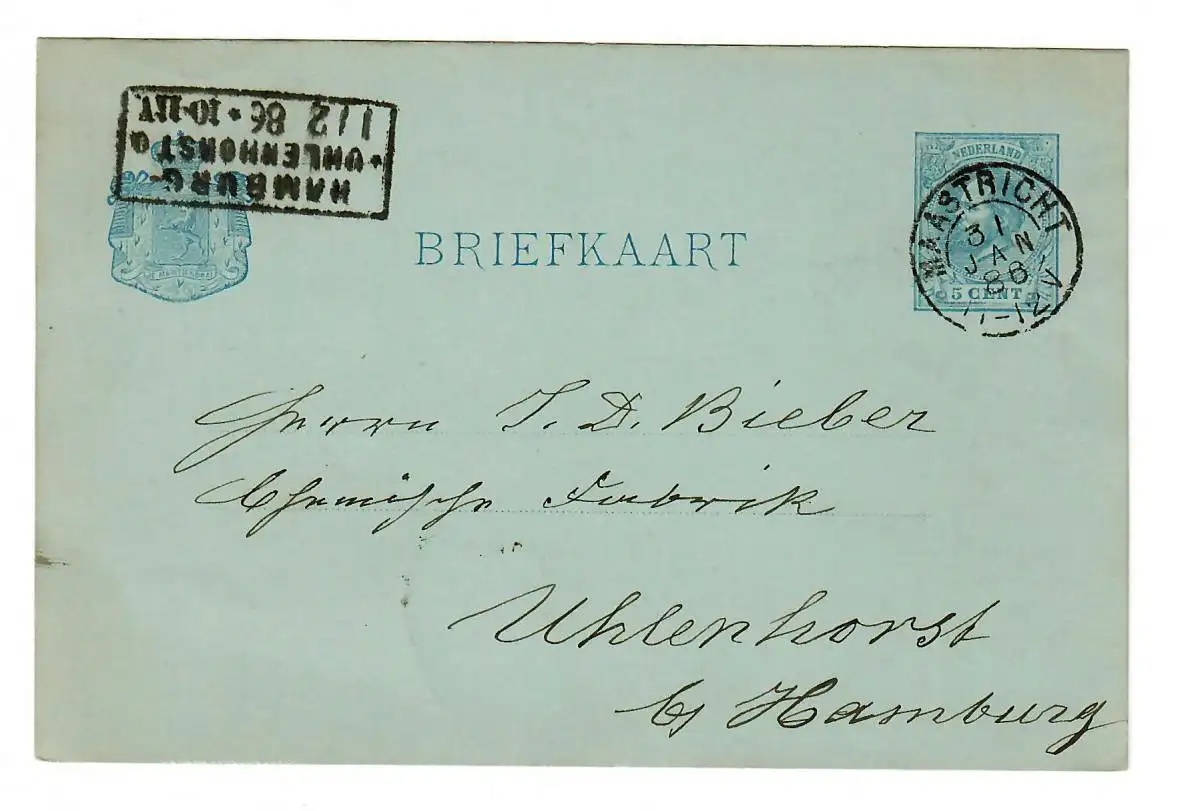 HAMBURG-
*UHLENHORST a
1/2 86 * 10-11V.
JE MAINTIENDRAI
BRIEFKAART
NEDERLAND
5 CENT
MAASTRICHT
31
JAN
86
11-12V
Herrn J. D. Bieber
Chemische Fabrik
Uhlenhorst
b/ Hamburg